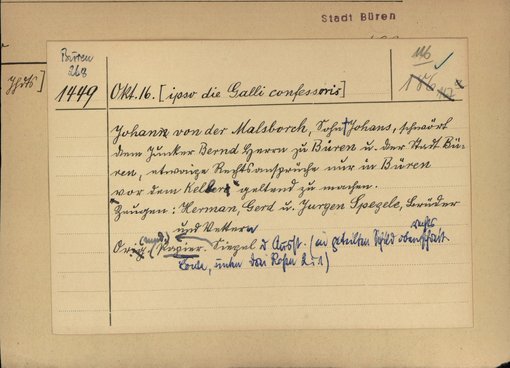 Stadt Büren
Büren
268
116
1449
Okt. 16. [ipso die Galli confessoris]
Johan von der Malsborch, Sohn † Johans, schwört
dem Junker Bernd Herrn zu Büren u. der Stadt Bü-
ren, etwaige Rechtsansprüche nur in Büren
vor dem geltend zu machen.
Zeugen: Herman, Gert u. Jurgen Spegele, Brüder
und Vettern
Orig. (Papier. Siegel d. Ausst. (in geteiltem Schild oben
rechts
unten drei Rosen 2:1)